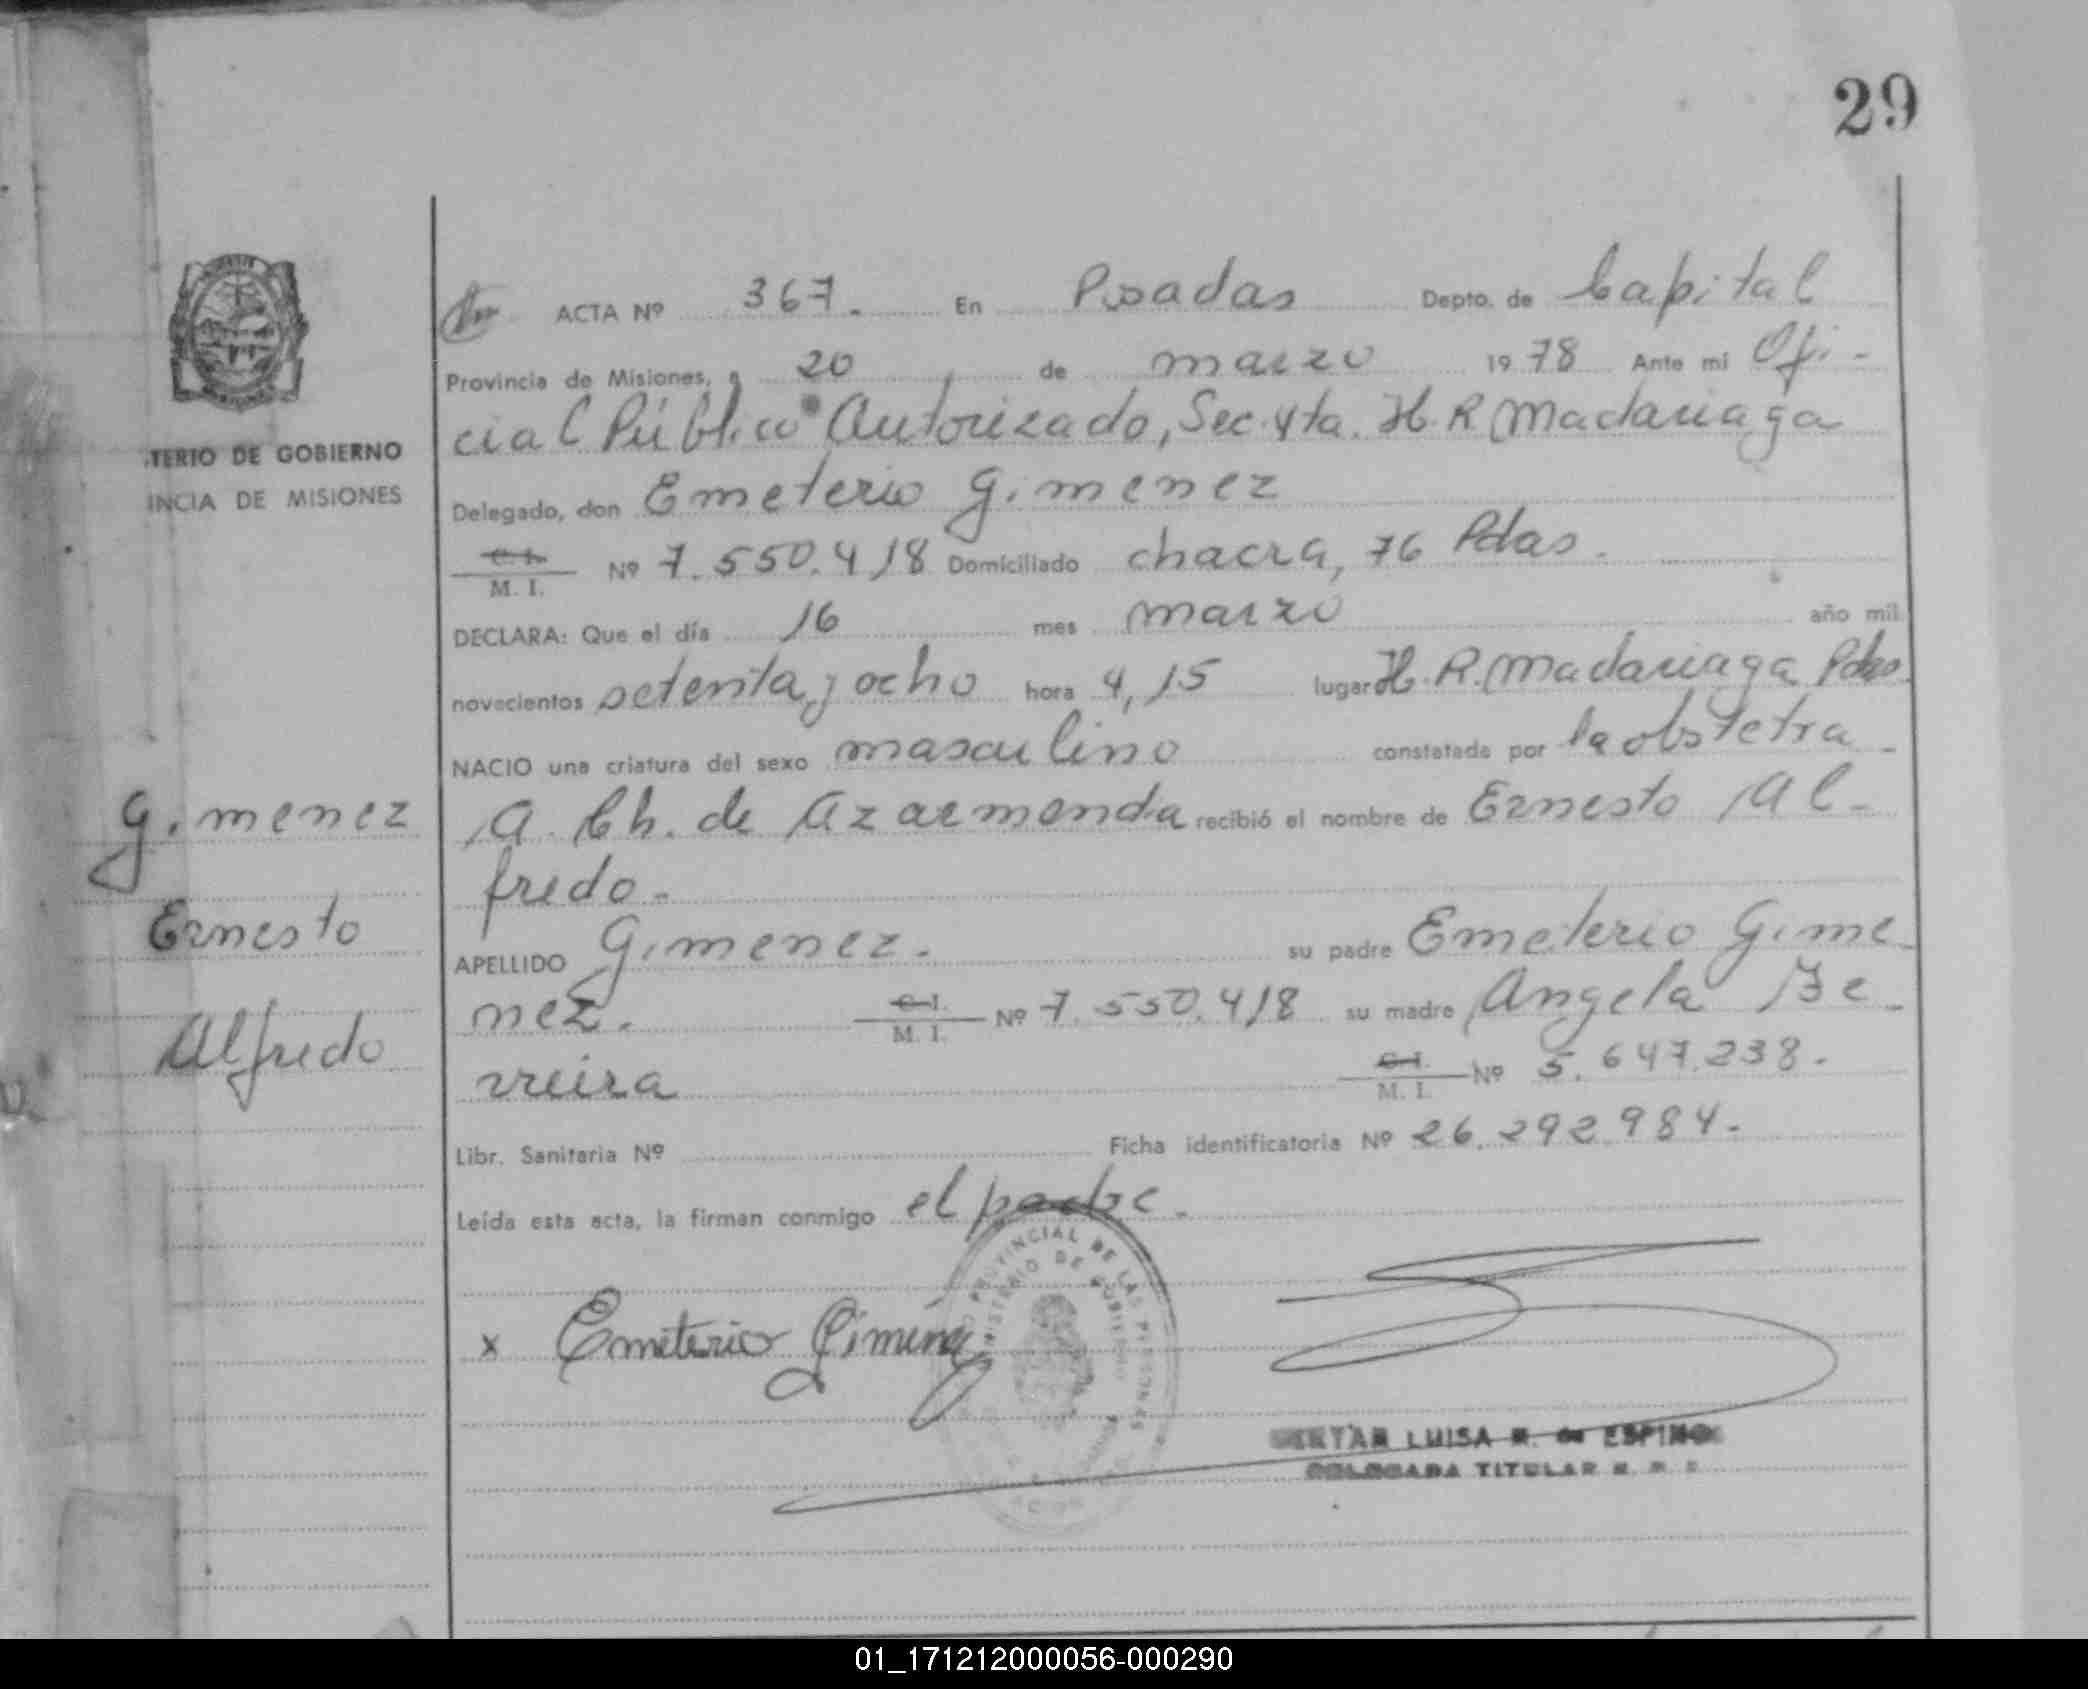 29
ACTA Nº 367. En Posadas Depto. de Capital
Provincia de Misiones, a 20 de marzo 1978 Ante mi Ofi-
cial Público Autorizado, Sec. 4ta. H. R. Madariaga
TERIO DE GOBIERNO
INCIA DE MISIONES
Delegado, don Emeterio Gimenez
C. I.
M. I. Nº 7.550.418 Domiciliado chacra, 76 Pdas.
DECLARA: Que el día 16 mes marzo año mil
novecientos setenta y ocho hora 4,15 lugar H. R. Madariaga Pdas.
NACIO una criatura del sexo masculino constatada por la obstetra-
Gimenez
A. Ch. de Azarmendia recibió el nombre de Ernesto Al-
fredo.-
Ernesto
APELLIDO Gimenez.- su padre Emeterio Gime-
Alfredo
nez. C. I. M. I. Nº 7.550.418 su madre Angela Be-
rreira C. I. M. I. Nº 5.647.238.-
Libr. Sanitaria Nº Ficha identificatoria Nº 26.292.984.-
Leída esta acta, la firman conmigo el padre.-
PROVINCIAL DE LAS PERSONAS
MINISTERIO DE GOBIERNO
x Emeterio Giménez
LUISA de ESPINO
DELEGADA TITULAR
01_171212000056-000290